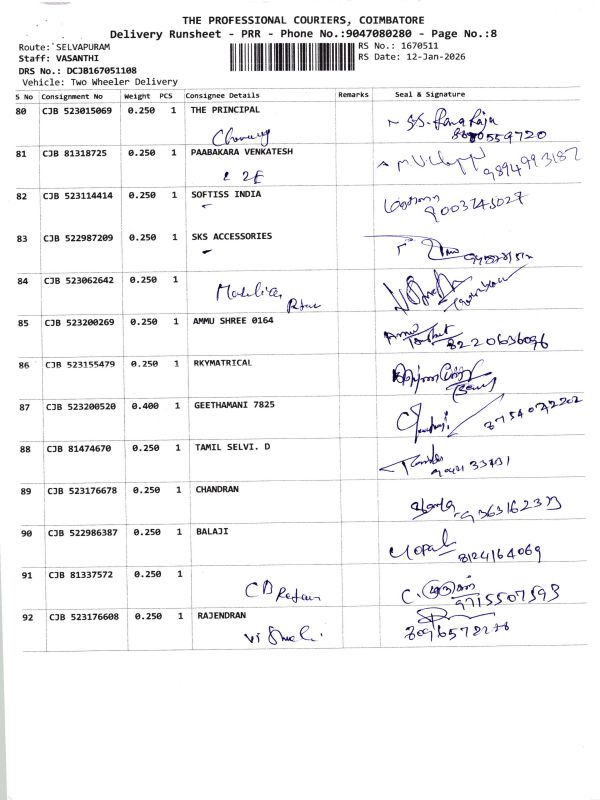 THE PROFESSIONAL COURIERS, COIMBATORE
Delivery Runsheet - PRR - Phone No.:9047080280 - Page No.:8
Route: SELVAPURAM
RS No.: 1670511
Staff: VASANTHI
RS Date: 12-Jan-2026
DRS No.: DCJB167051108
Vehicle: Two Wheeler Delivery
S No Consignment No Weight PCS Consignee Details Remarks Seal & Signature
80 CJB 523015069 0.250 1 THE PRINCIPAL
81 CJB 81318725 0.250 1 PAABAKARA VENKATESH
9894993187
82 CJB 523114414 0.250 1 SOFTISS INDIA
9003743027
83 CJB 522987209 0.250 1 SKS ACCESSORIES
84 CJB 523062642 0.250 1
85 CJB 523200269 0.250 1 AMMU SHREE 0164
8220636096
86 CJB 523155479 0.250 1 RKYMATRICAL
87 CJB 523200520 0.400 1 GEETHAMANI 7825
88 CJB 81474670 0.250 1 TAMIL SELVI. D
89 CJB 523176678 0.250 1 CHANDRAN
90 CJB 522986387 0.250 1 BALAJI
Gopal
8124164069
91 CJB 81337572 0.250 1
9715507593
92 CJB 523176608 0.250 1 RAJENDRAN